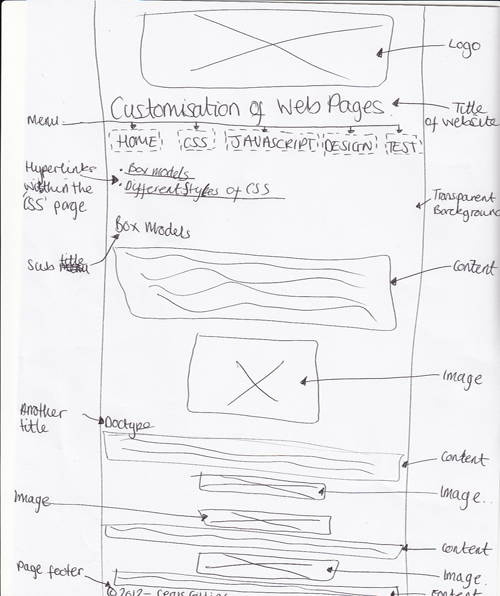 Logo
Customisation of Web Pages.
Title
of website
Menu
HOME CSS JAVASCRIPT DESIGN TEST
Hyperlinks
within the
'CSS' page
• Box models
• Different Styles of CSS
Transparent
Background
Box Models
Sub title
Content
Image
Another
title
Doctype
Content
Image..
Image
Content
Image.
Page footer
Content
© 2012 -